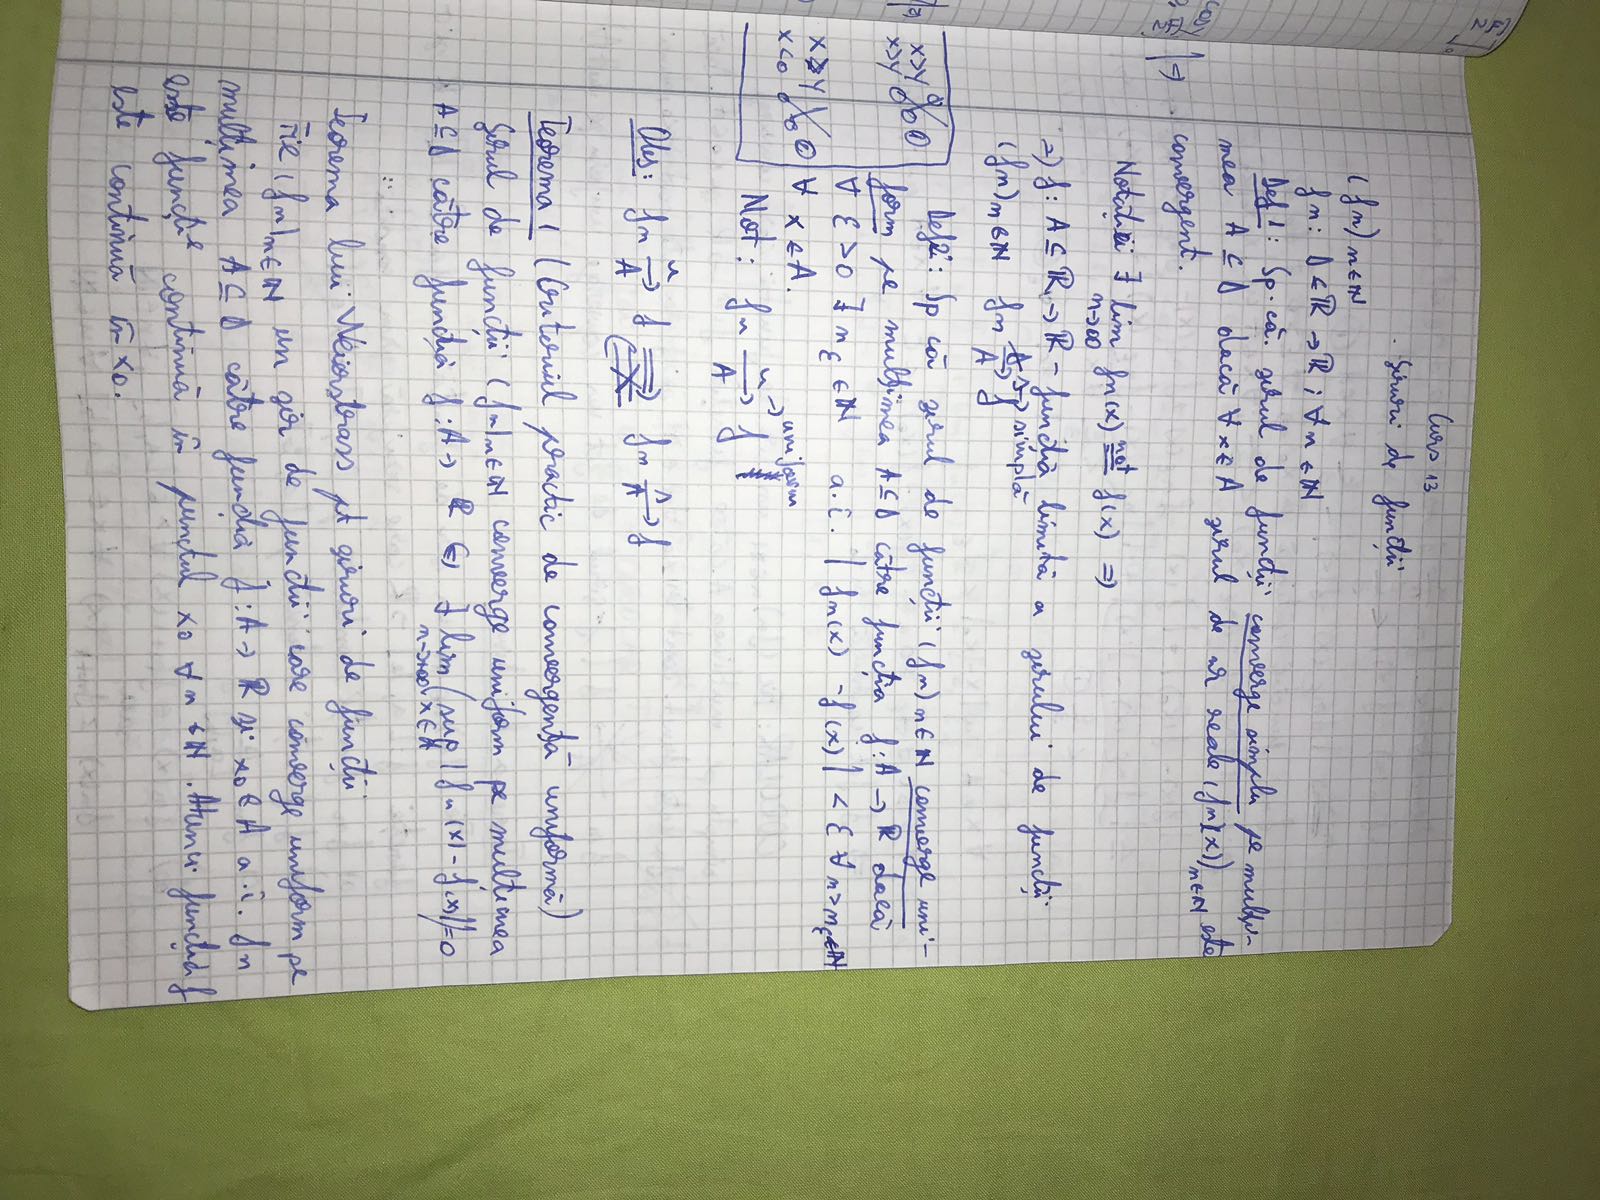 Curs 13
Șiruri de funcții
(fn) n∈ℕ
fn : D⊆ℝ → ℝ ; ∀ n ∈ ℕ
Def 1: Sp. că șirul de funcții converge simplu pe mulți-
mea A ⊆ D dacă ∀ x ∈ A șirul de nr reale (fn(x)) n∈ℕ este
convergent.
Notăm ∃ lim n→∞ fn(x) not= f(x) =>
=> f : A ⊆ ℝ → ℝ - funcția limită a șirului de funcții
(fn) n∈ℕ fn s→ A f s→ simplă
Def 2: Sp că șirul de funcții (fn) n∈ℕ converge uni-
form pe mulțimea A ⊆ D către funcția f : A → ℝ dacă
∀ ε > 0 ∃ nε ∈ ℕ a.î. | fn(x) - f(x) | < ε ∀ n > nε ∈ℕ
∀ x ∈ A.
Not : fn u→ A f u → uniform
x>y
x>y
x>y
x<0
Obs: fn u→ A f => fn s→ A f
Teorema 1 (Criteriul practic de convergență uniformă)
Șirul de funcții (fn) n∈ℕ converge uniform pe mulțimea
A ⊆ D către funcția f : A → ℝ <=> ∃ lim n→∞ (sup x∈A | fn(x) - f(x)|) = 0
Teorema lui Weierstrass pt șiruri de funcții
Fie (fn) n∈ℕ un șir de funcții care converge uniform pe
mulțimea A ⊆ D către funcția f : A → ℝ și x0 ∈ A a.î. fn
este funcție continuă în punctul x0 ∀ n ∈ ℕ. Atunci funcția f
este continuă în x0.